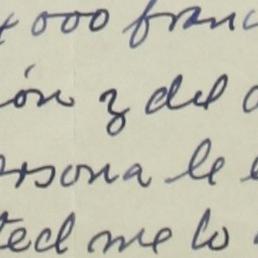 000 fran
ión y del
ersona le
ted me lo